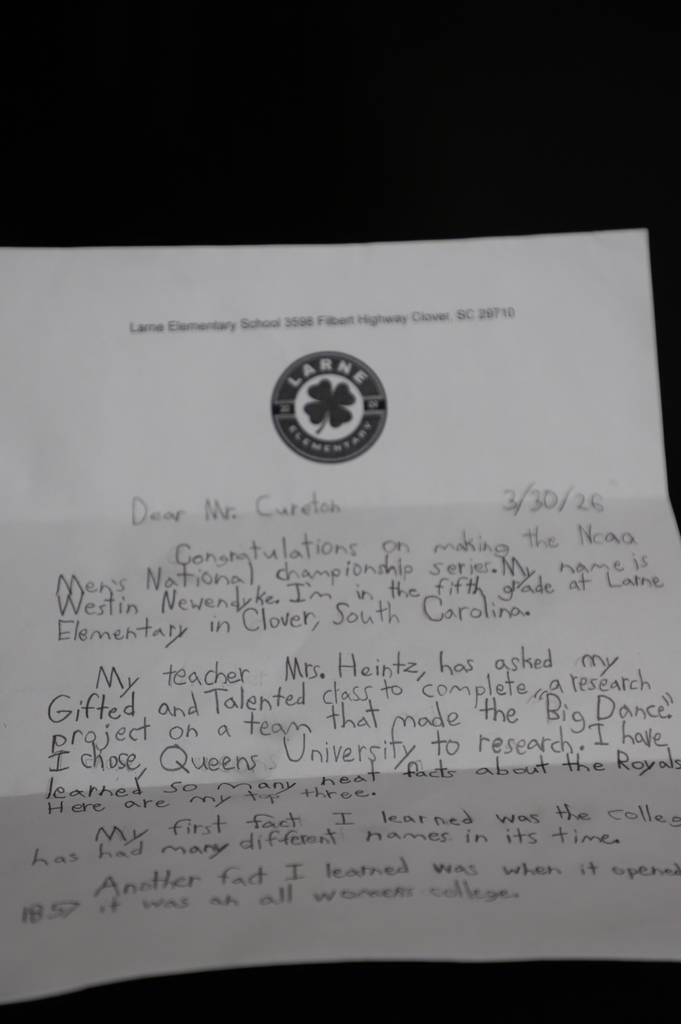 Larne Elementary School 3598 Filbert Highway Clover, SC 29710
LARNE
20 01
ELEMENTARY
Dear Mr. Cureton 3/30/26
Congratulations on making the Ncaa
Men's National championship series. My name is
Westin Newendyke. I'm in the fifth grade at Larne
Elementary in Clover, South Carolina.
My teacher Mrs. Heintz, has asked my
Gifted and Talented class to complete a research
project on a team that made the "Big Dance."
I chose Queens University to research. I have
learned so many neat facts about the Royals
Here are my top three.
My first fact I learned was the colleg
has had many different names in its time.
Another fact I learned was when it opened
1857 it was an all womens college.